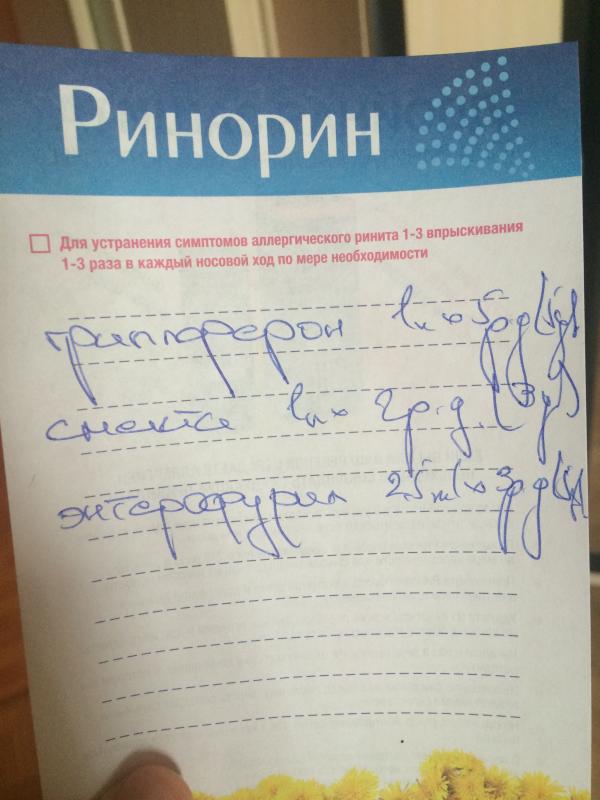 Ринорин
Для устранения симптомов аллергического ринита 1-3 впрыскивания
1-3 раза в каждый носовой ход по мере необходимости
гриппферон 1к х 5р.д (5д)
смекта 1п х 2р.д. (3д)
энтерофурил 2,5 ml х 3р.д (5д)